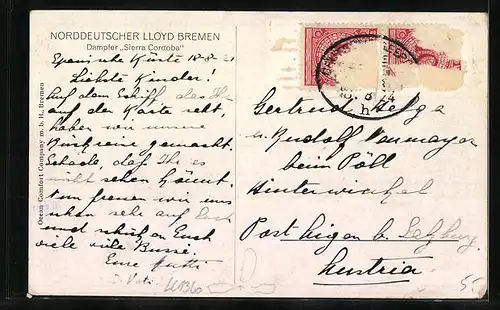 NORDDEUTSCHER LLOYD BREMEN
Dampfer „Sierra Cordoba"
Spanische Küste 18-8-
Liebste Kinder!
Auf dem Schiff, das Ihr
auf der Karte seht,
haben wir unsere
Rückreise gemacht.
Schade, daß Ihr es
nicht sehen könnt.
Nun freuen wir uns
schon sehr auf Euch
und schicken Euch
viele viele Bussi.
Eure Mutti
Vati
Ocean Comfort Company m. b. H., Bremen
Gertrud Helga
u. Rudolf Neumayer
beim Pöll
Hinterwinkel
Post Aigen b. Salzburg
Austria